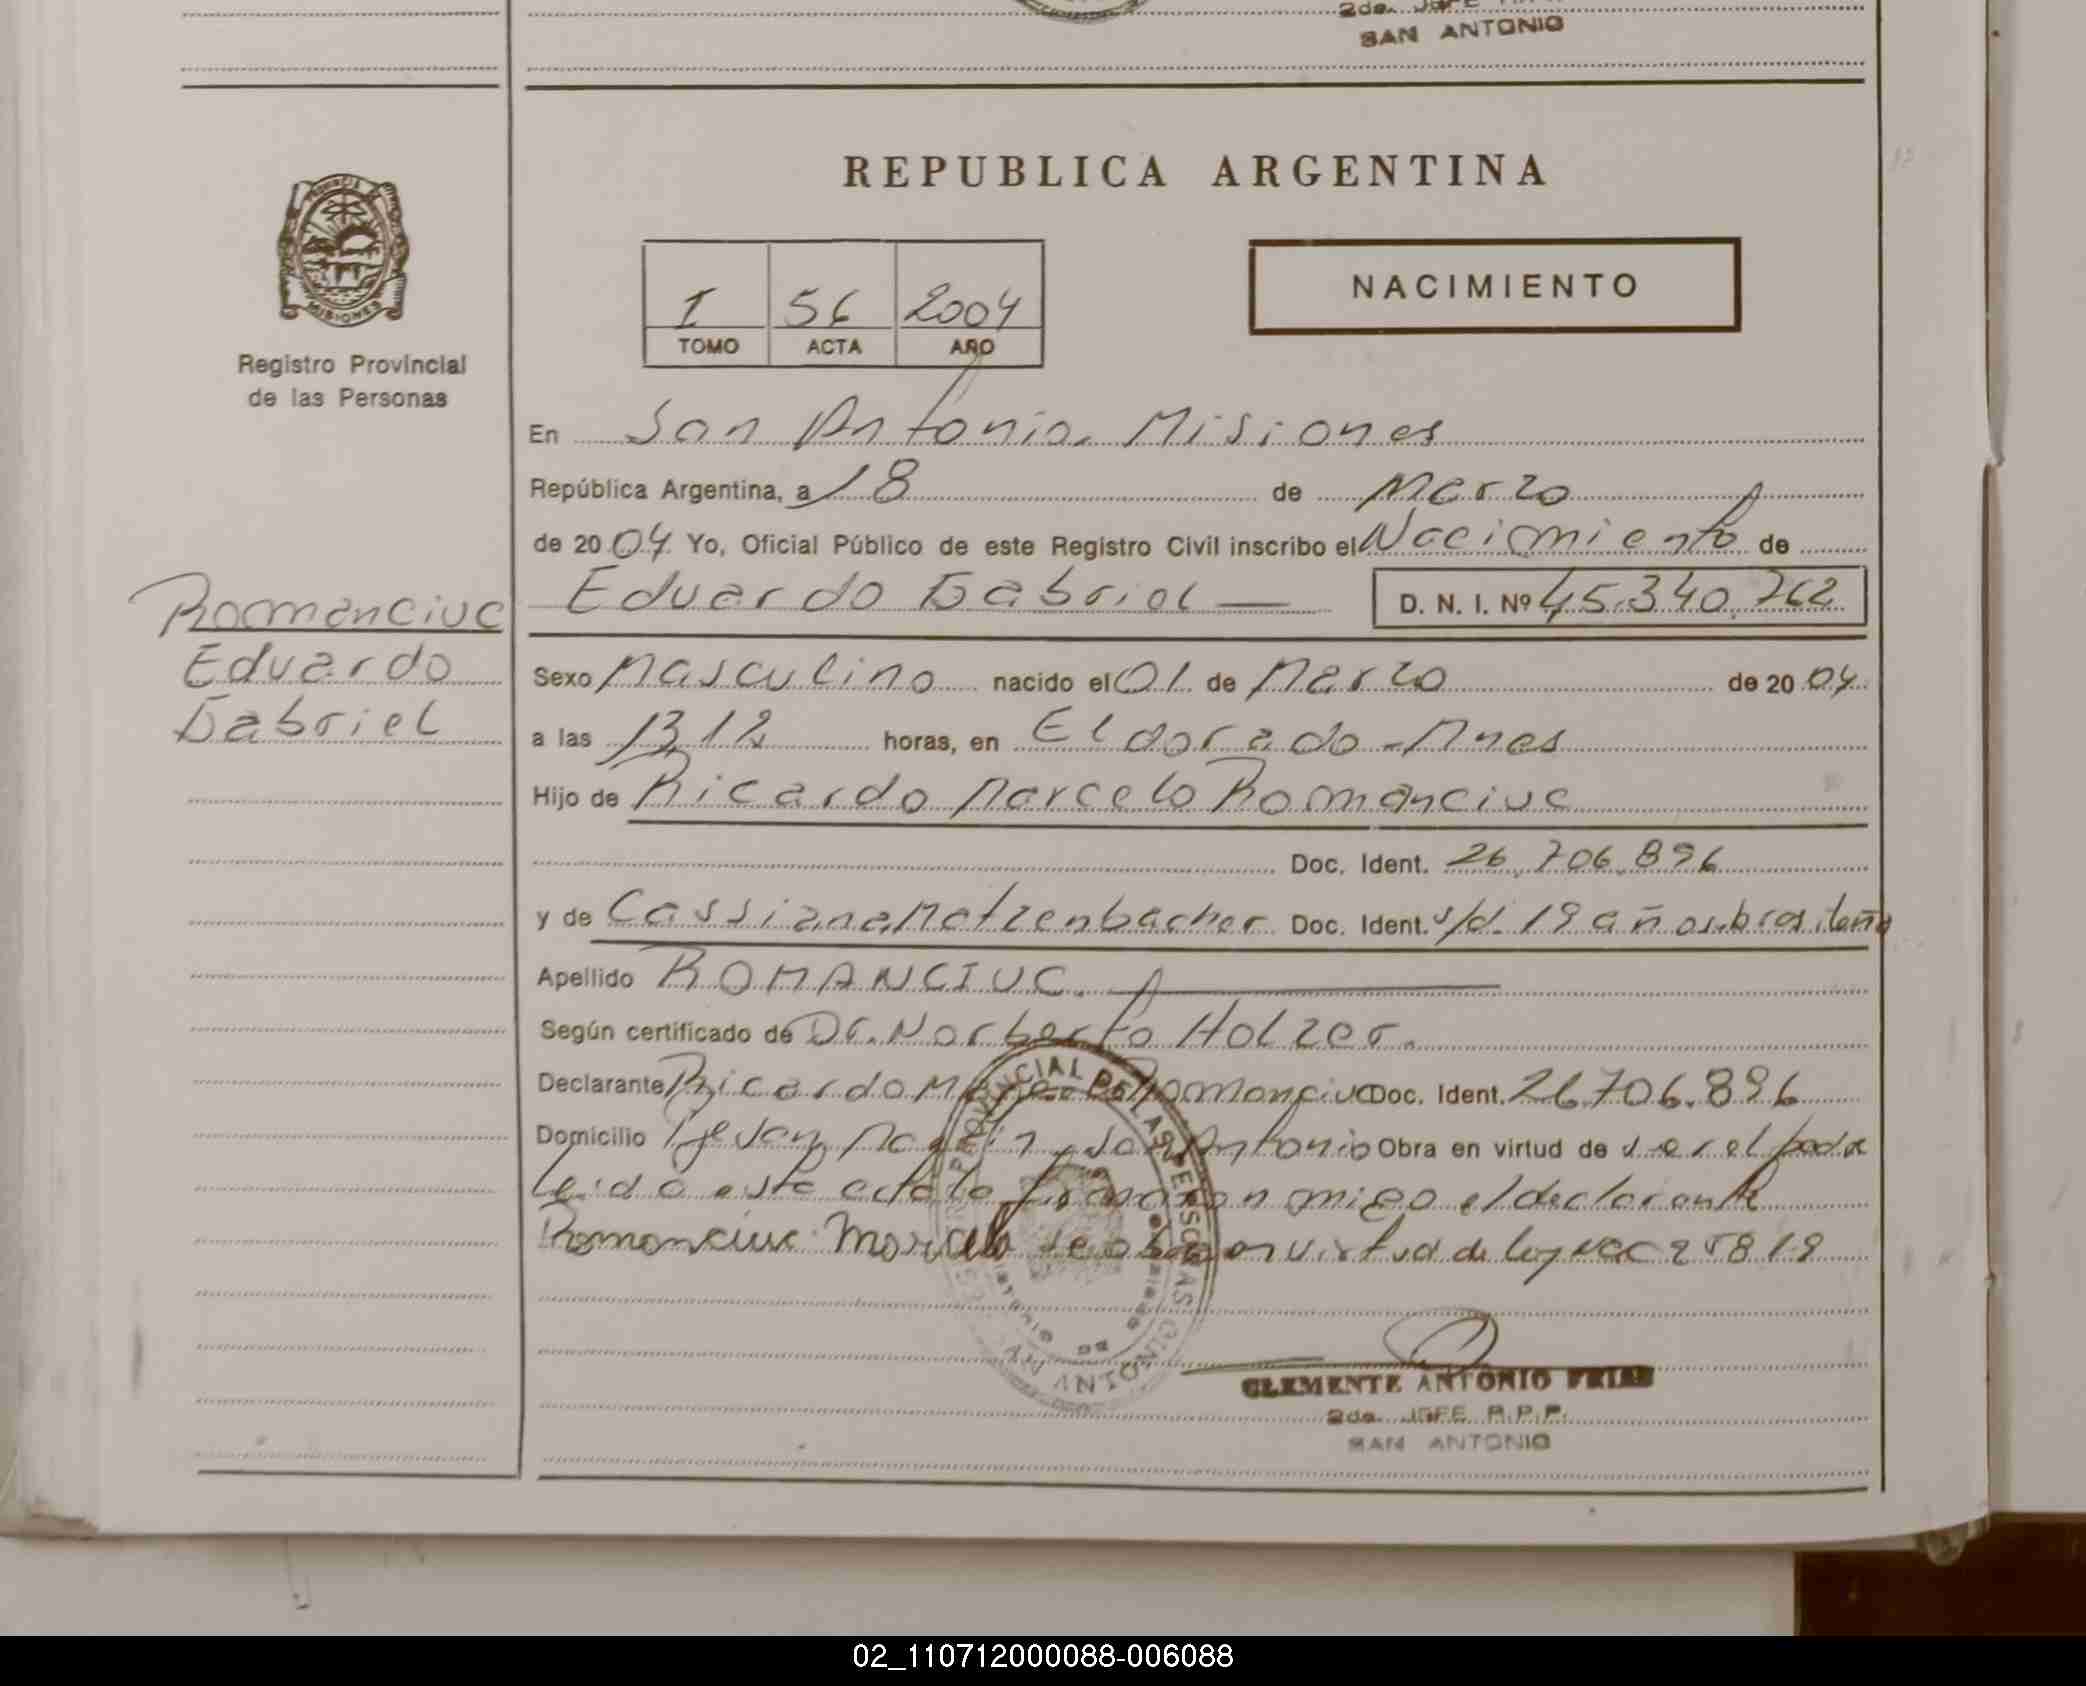 2do. JEFE
SAN ANTONIO
REPUBLICA ARGENTINA
PROVINCIA
MISIONES
I 56 2004
TOMO ACTA AÑO
NACIMIENTO
Registro Provincial
de las Personas
En San Antonio. Misiones
República Argentina, a 18 de Marzo
de 2004 Yo, Oficial Público de este Registro Civil inscribo el Nacimiento de
Eduardo Gabriel D. N. I. Nº 45.340.762
Romanciuc
Eduardo
Gabriel
Sexo Masculino nacido el 01 de Marzo de 2004
a las 13,12 horas, en Eldorado - Mnes
Hijo de Ricardo Marcelo Romanciuc
Doc. Ident. 26.706.896
y de Cassiana Metzenbacher Doc. Ident. s/d. 19 años. brasileña
Apellido ROMANCIUC.
Según certificado de Dr. Norberto Holzer.
Declarante Ricardo Marcelo Romanciuc Doc. Ident. 26.706.896
Domicilio San Antonio Obra en virtud de ser el padre
Leida este acta la firma conmigo el declarante
Romanciuc Marcelo Se obra en virtud de ley Nac 25819
PROVINCIAL DE LAS PERSONAS
CLEMENTE ANTONIO FRIAS
2do. JEFE R.P.P.
SAN ANTONIO
02_110712000088-006088